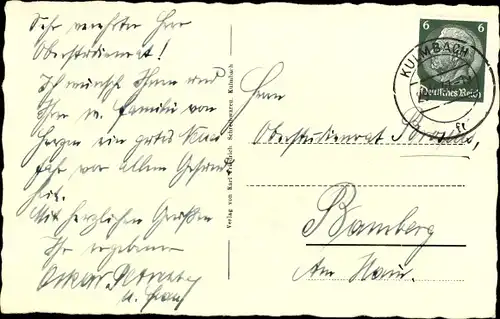 Sehr verehrter Herr
Oberstudienrat!
Ich wünsche Ihnen und
Ihrer w. Familie von
Herzen ein gutes Neu
jahr vor allem Gesund
heit.
Mit herzlichen Grüßen
Ihr ergebener
Oskar
u. Frau
Verlag von Karl Friedrich Schreibwaren, Kulmbach
6 6
Deutsches Reich
KULMBACH
Herrn
Oberstudienrat
Bamberg
Am Hain.